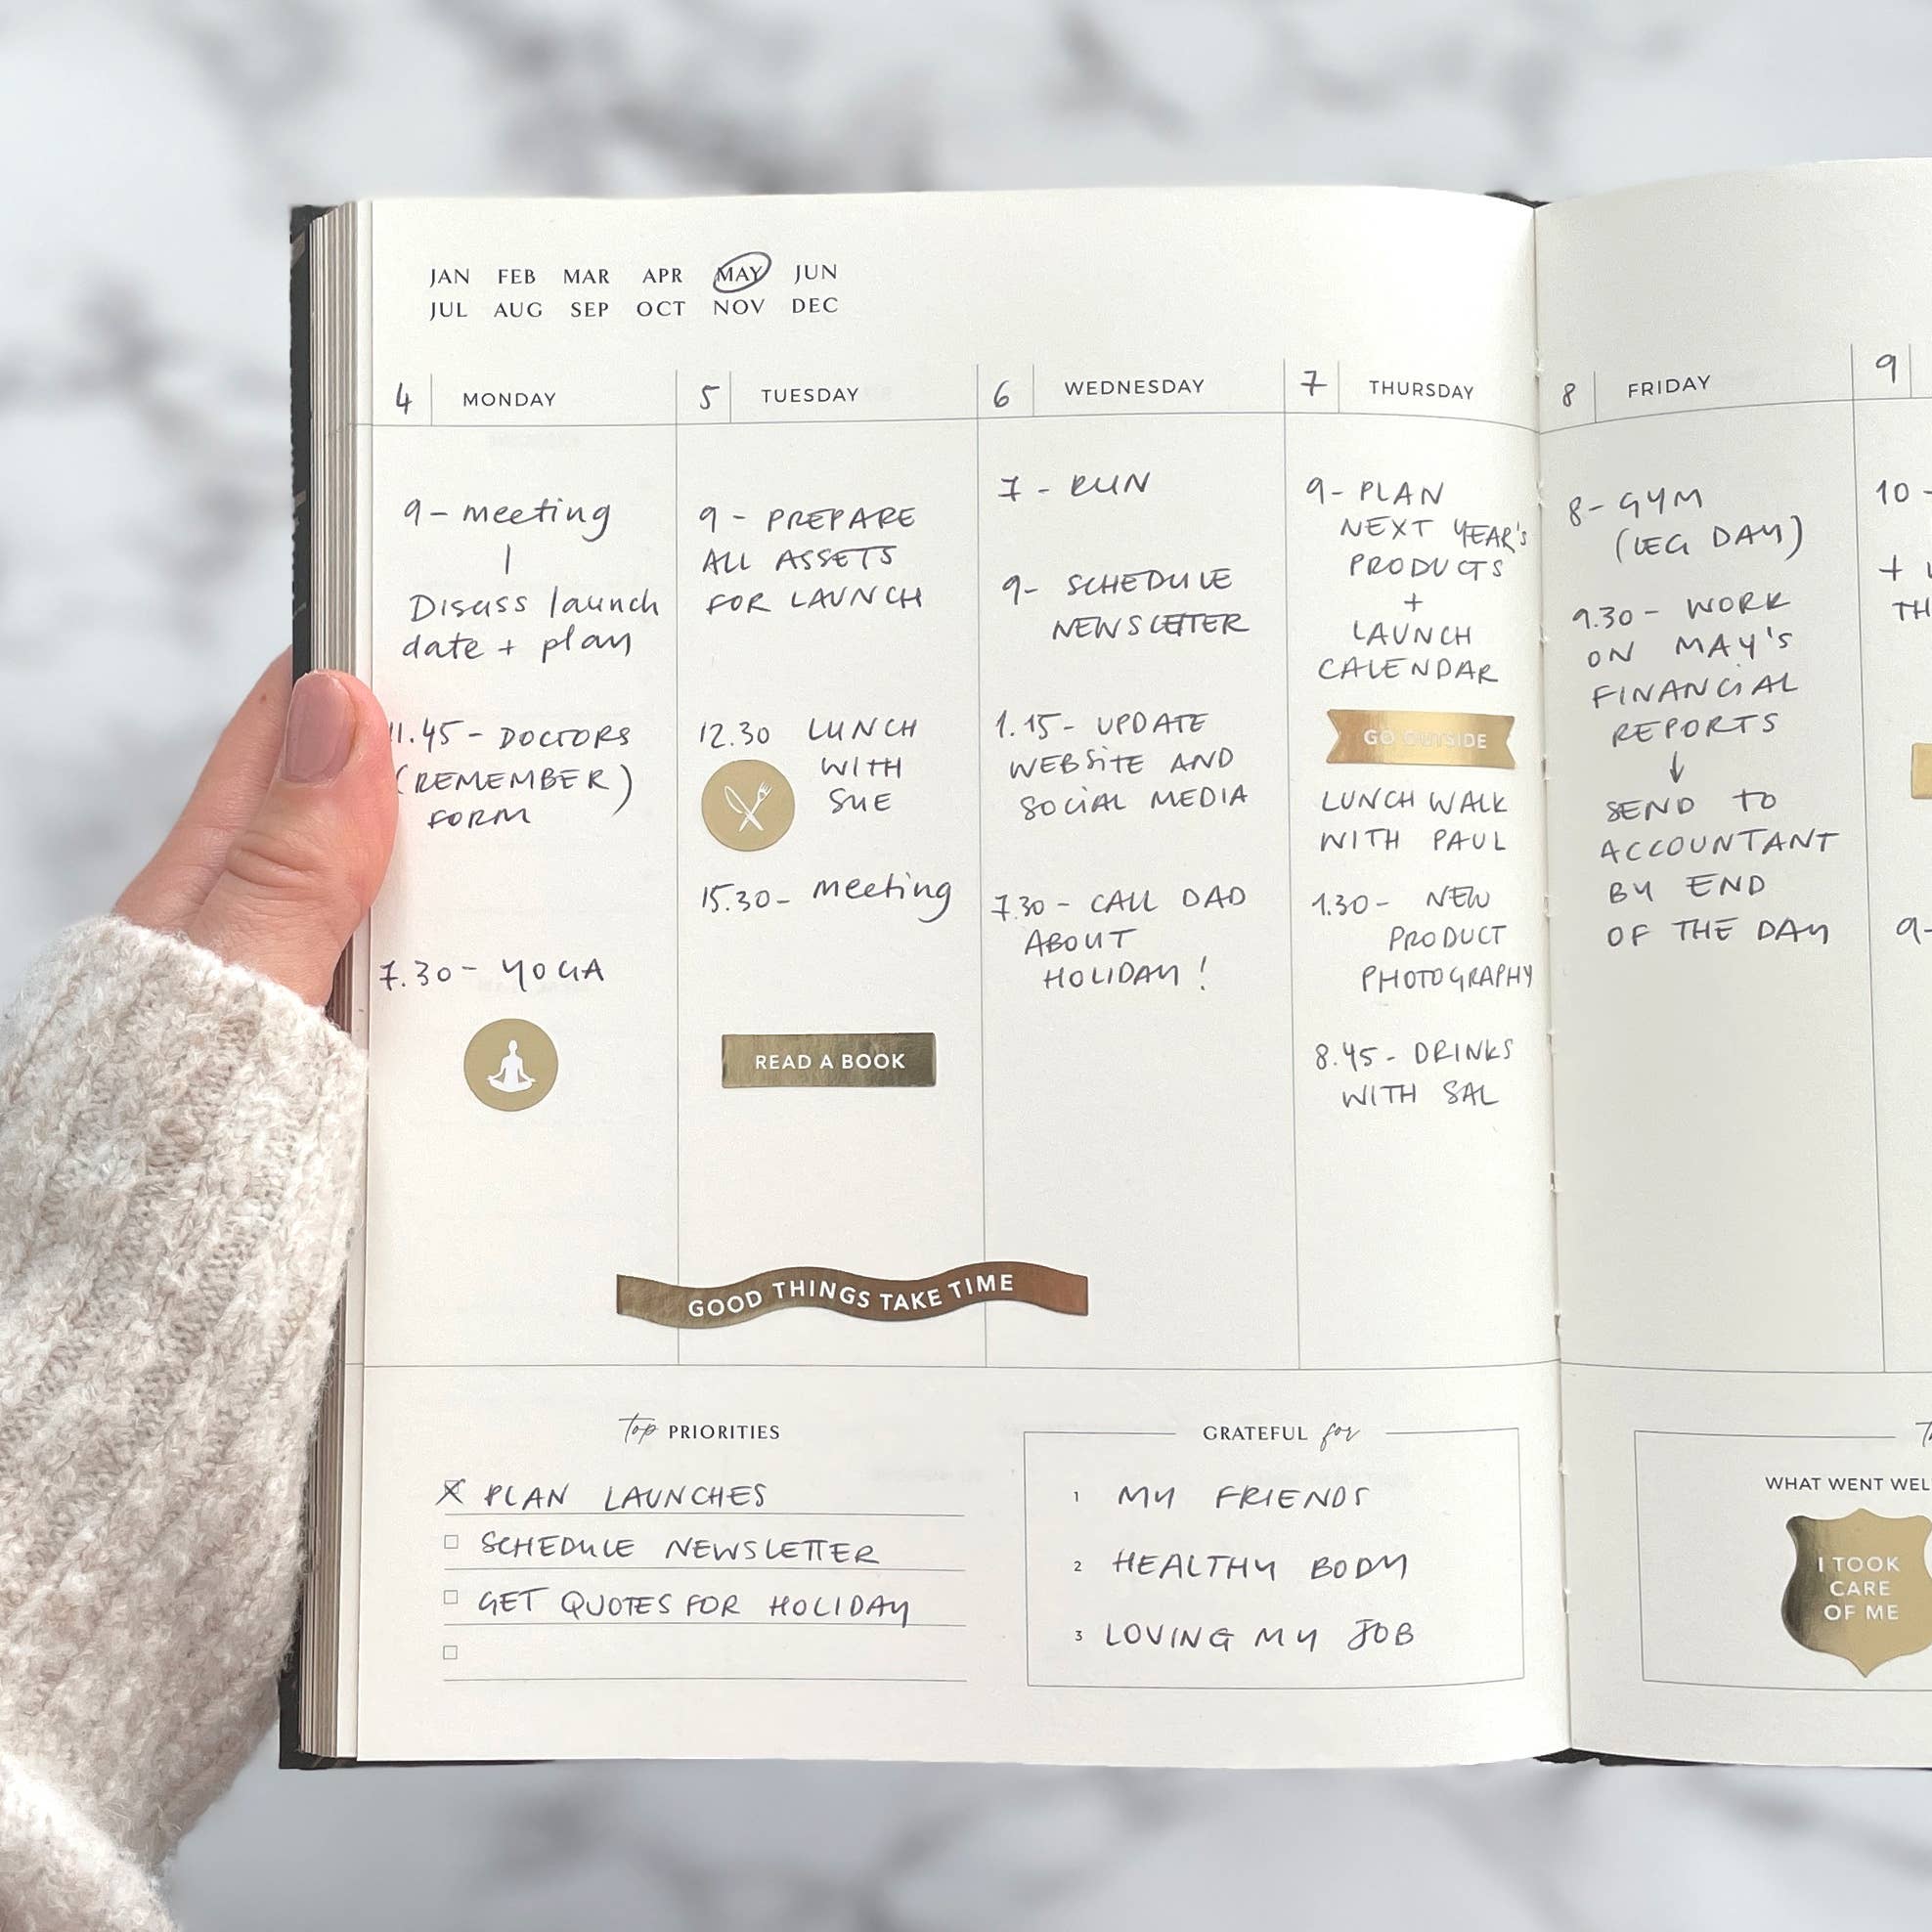 JAN FEB MAR APR MAY JUN
JUL AUG SEP OCT NOV DEC
4 MONDAY
9 - meeting
Discss launch
date + plan
11.45 - DOCTORS
(REMEMBER)
FORM
7.30 - YOGA
5 TUESDAY
9 - PREPARE
ALL ASSETS
FOR LAUNCH
12.30 LUNCH
WITH
SUE
15.30 - meeting
READ A BOOK
6 WEDNESDAY
7 - RUN
9 - SCHEDULE
NEWSLETTER
1.15 - UPDATE
WEBSITE AND
SOCIAL MEDIA
7.30 - CALL DAD
ABOUT
HOLIDAY!
7 THURSDAY
9 - PLAN
NEXT YEAR'S
PRODUCTS
+
LAUNCH
CALENDAR
GO OUTSIDE
LUNCH WALK
WITH PAUL
1.30 - NEW
PRODUCT
PHOTOGRAPHY
8.45 - DRINKS
WITH SAL
GOOD THINGS TAKE TIME
8 FRIDAY
8 - GYM
(LEG DAY)
9.30 - WORK
ON MAY'S
FINANCIAL
REPORTS
↓
SEND TO
ACCOUNTANT
BY END
OF THE DAY
9
10 -
+
TH
9 -
top PRIORITIES
PLAN LAUNCHES
SCHEDULE NEWSLETTER
GET QUOTES FOR HOLIDAY
GRATEFUL for
1 MY FRIENDS
2 HEALTHY BODY
3 LOVING MY JOB
WHAT WENT WEL
I TOOK
CARE
OF ME